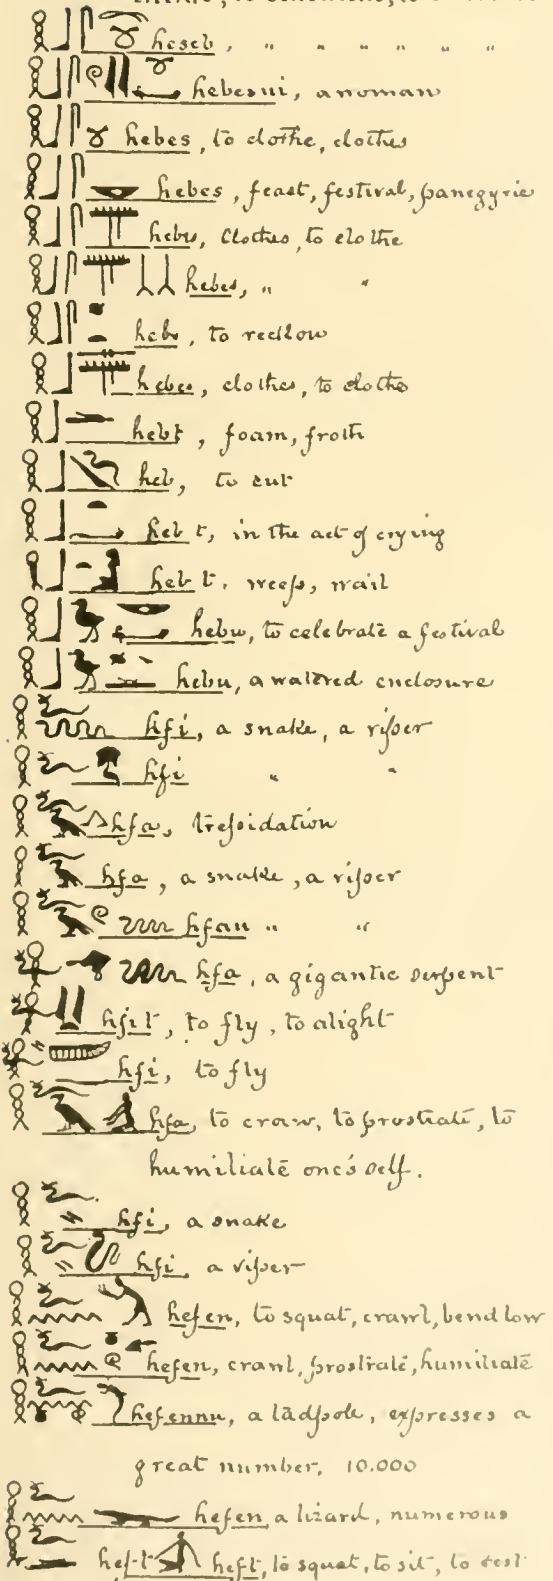 heseb, " " " " " "
hebesui, a woman
hebes, to clothe, clothes
hebes, feast, festival, panegyric
hebes, clothes, to clothe
hebes, " "
hebs, to
hebes, clothes, to clothe
hebt, foam, froth
heb, to cut
hebt, in the act of crying
hebt. weeps, wail
hebu, to celebrate a festival
hebu, a watered enclosure
hfi, a snake, a viper
hfi " "
hfa, trepidation
hfa, a snake, a viper
hfau " "
hfa, a gigantic serpent
hfit, to fly, to alight
hfi, to fly
hfa, to craw, to prostrate, to
humiliate one's self.
hfi, a snake
hfi, a viper
hefen, to squat, crawl, bend low
hefen, crawl, prostrate, humiliate
hefennu, a tadpole, expresses a
great number. 10.000
hefen, a lizard, numerous
heft heft, to squat, to sit, to rest